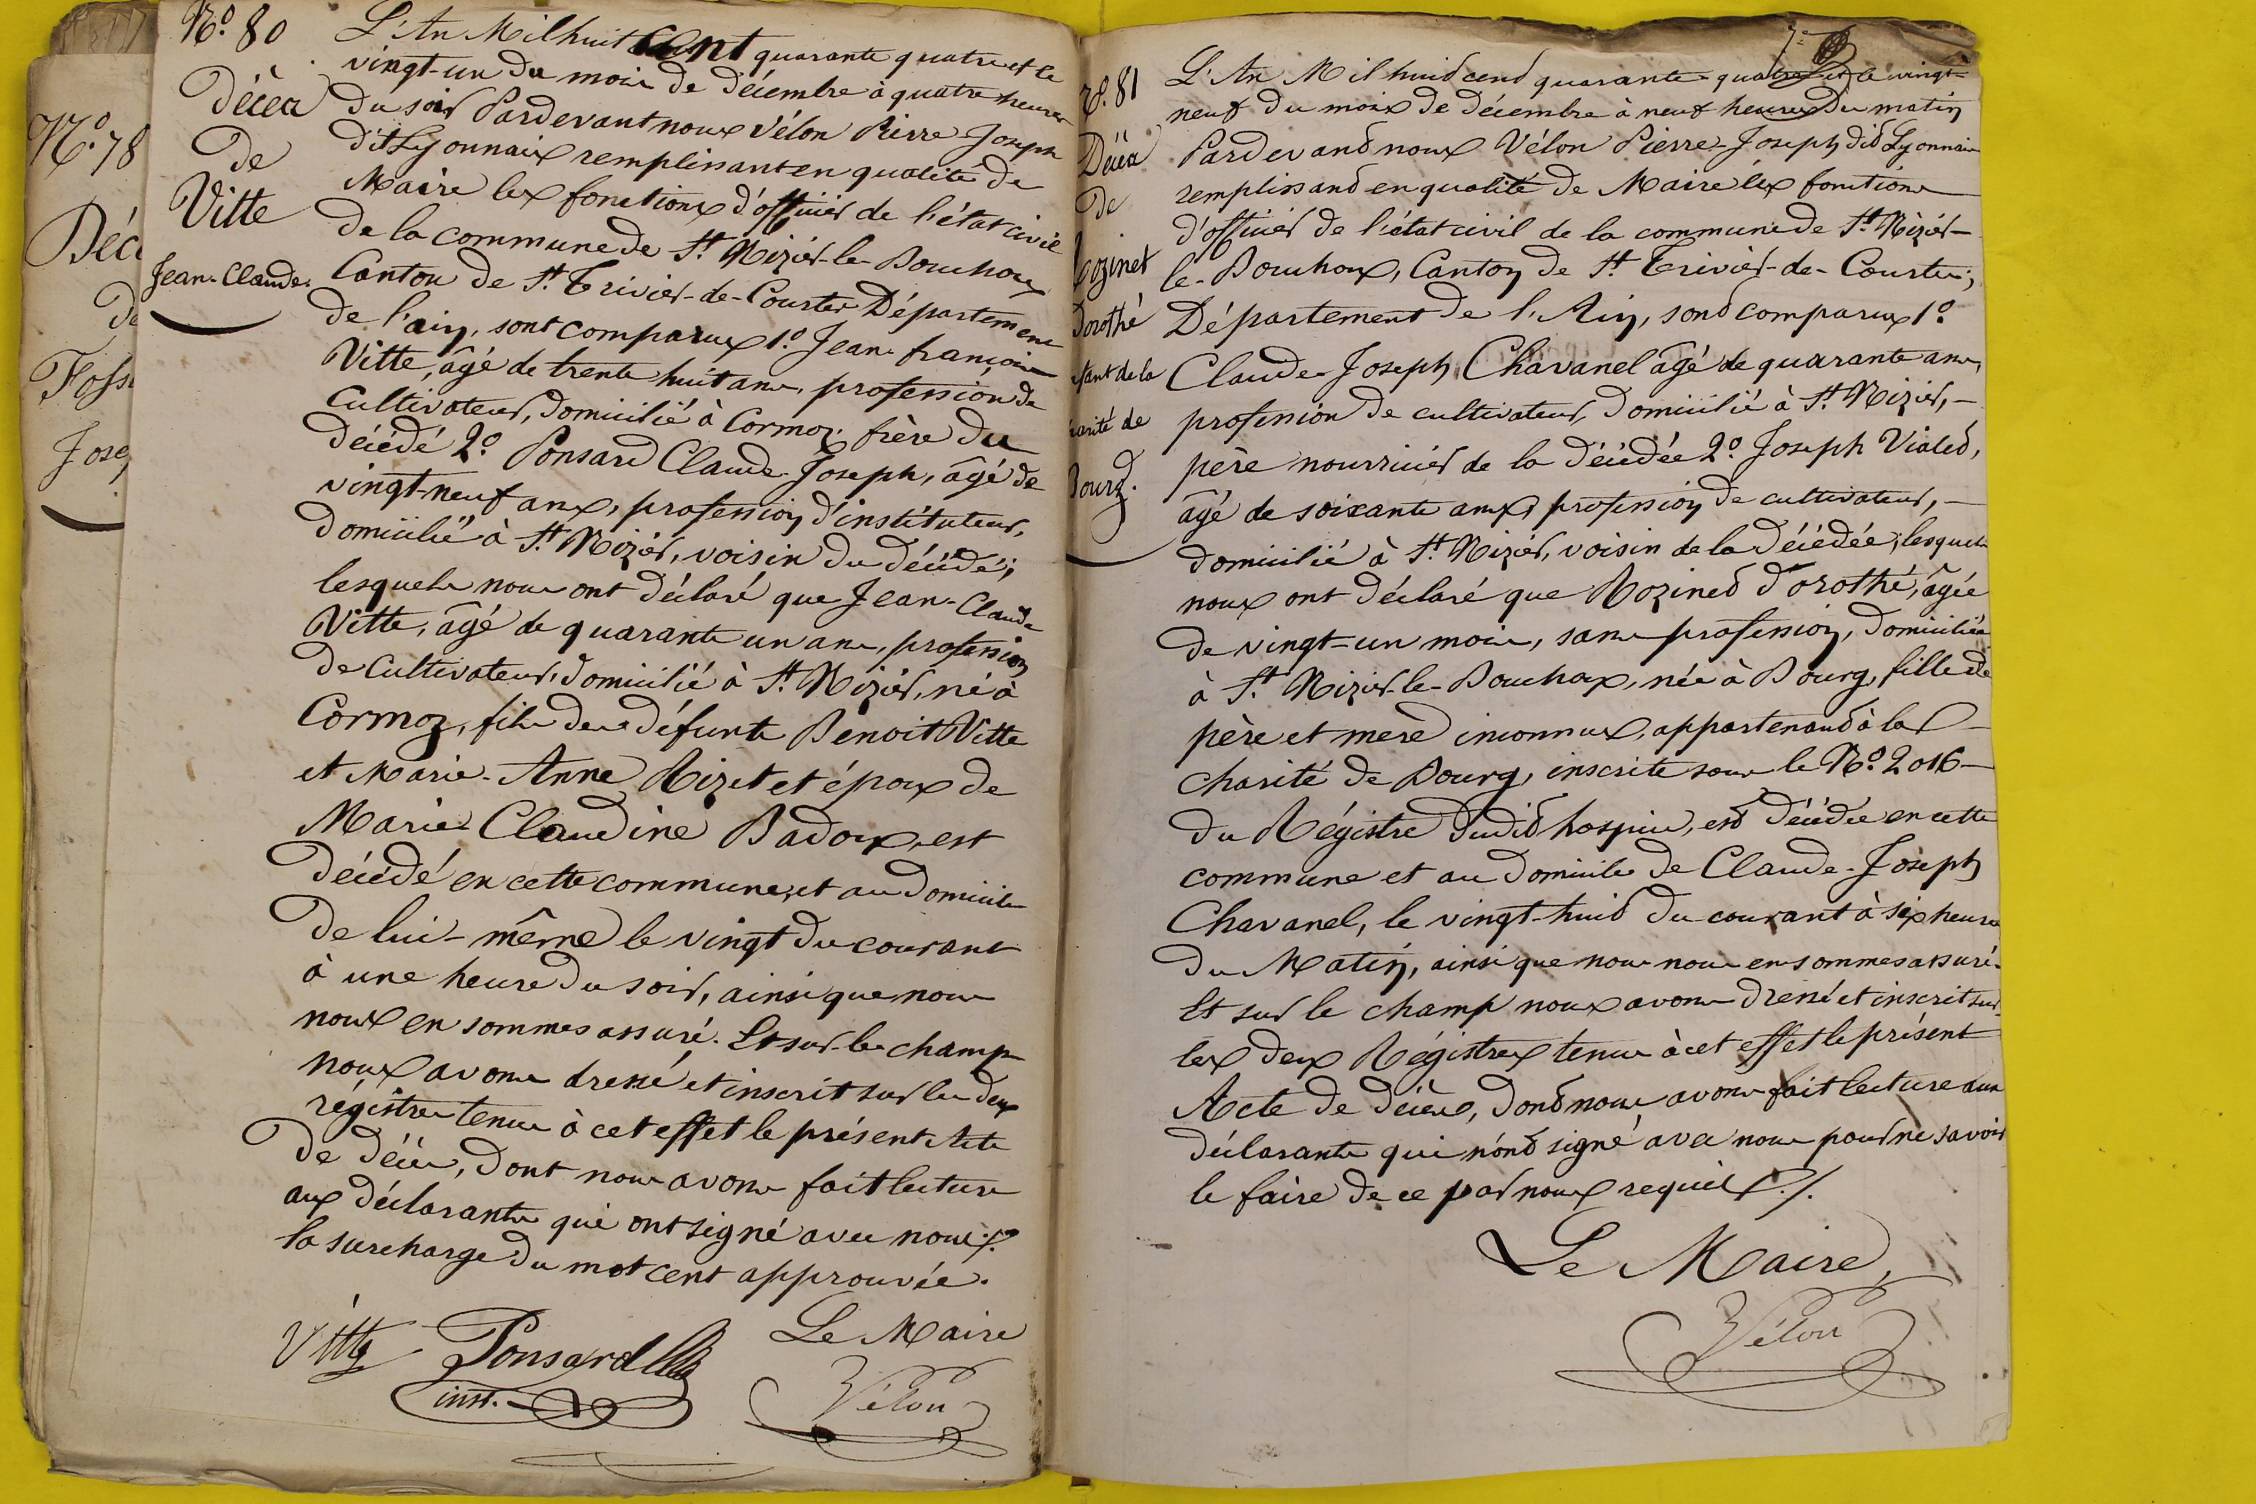 N.º 78
Déc
de
Foss
Jose
N.º 80
Décès
de
Vitte
Jean-Claude.
L'An Mil huit cent quarante quatre et le
vingt-un du mois de décembre à quatre heures
du soir Pardevant nous Vélon Pierre-Joseph
dit Lyonnais remplissant en qualité de
Maire les fonctions d'officier de l'état civil
de la commune de St. Nizier-le-Bouchoux
Canton de St. Trivier-de-Courtes Département
de l'ain, sont comparus 1.º Jean-françois
Vitte, âgé de trente huit ans, profession de
Cultivateur, domicilié à Cormoz frère du
décédé 2.º Ponsard Claude-Joseph, âgé de
vingt-neuf ans, profession d'instituteur,
domicilié à St. Nizier, voisin du décédé;
lesquels nous ont déclaré que Jean-Claude
Vitte, âgé de quarante un ans, profession
de Cultivateur, domicilié à St. Nizier, né à
Cormoz, fils des défunts Benoit Vitte
et Marie-Anne Rizet et époux de
Marie-Claudine Badoux, est
décédé en cette commune, et au domicile
de lui-même le vingt du courant
à une heure du soir, ainsi que nous
nous en sommes assuré. Et sur-le-champ
nous avons dressé et inscrit sur les deux
régistres tenus à cet effet le présent Acte
de décès, dont nous avons fait lecture
aux déclarants qui ont signé avec nous ./.
la surcharge du mot cent approuvée.
Vitte Ponsard
inst.
Le Maire
Vélon
N.º 81
Décès
de
Rozinet
Dorothé
fant de la
arité de
Bourg.
L'An Mil huit cent quarante-quatre et le vingt-
neuf du mois de décembre à neuf heures du matin
Pardevant nous Vélon Pierre-Joseph dit Lyonnais
remplissant en qualité de Maire les fonctions
d'officier de l'état civil de la commune de St. Nizier-
le-Bouchoux, Canton de St. Trivier-de-Courtes;
Département de l'Ain, sont comparus 1.º
Claude-Joseph Chavanel âgé de quarante ans,
profession de cultivateur, domicilié à St. Nizier,
père nourricier de la décédée 2.º Joseph Vialet,
âgé de soixante ans, profession de cultivateur,
domicilié à St. Nizier, voisin de la décédée; lesquels
nous ont déclaré que Rozinet Dorothé, âgée
de vingt-un mois, sans profession, domiciliée
à St. Nizier-le-Bouchoux, née à Bourg, fille de
père et mère inconnus, appartenant à la
charité de Bourg, inscrite sous le N.º 2016
du Régistre dudit hospice, est décédée en cette
commune et au domicile de Claude-Joseph
Chavanel, le vingt-huit du courant à six heures
du Matin, ainsi que nous nous en sommes assuré.
Et sur le champ nous avons dressé et inscrit sur
les deux Régistres tenus à cet effet le présent
Acte de décès, dont nous avons fait lecture aux
déclarants qui n'ont signé avec nous pour ne savoir
le faire de ce par nous requis ./.
Le Maire,
Vélon